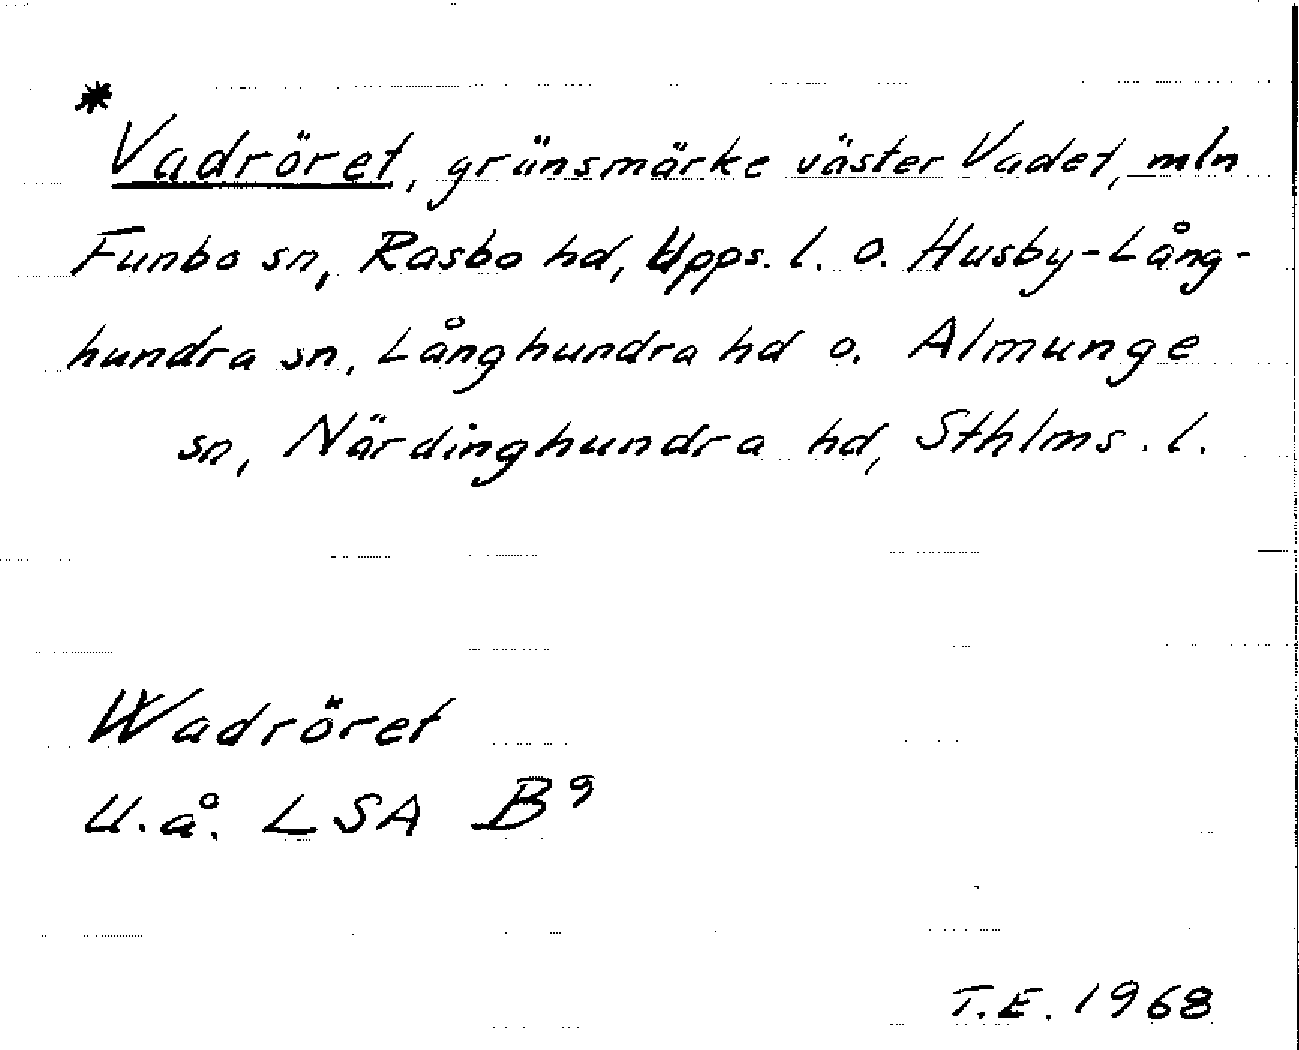 *
Vadröret, gränsmärke väster Vadet, mln
Funbo sn, Rasbo hd, Upps. l. o. Husby-Lång-
hundra sn, Långhundra hd o. Almunge
sn, Närdinghundra hd, Sthlms. l.
Wadröret
U.å. LSA B⁹
T.E. 1968